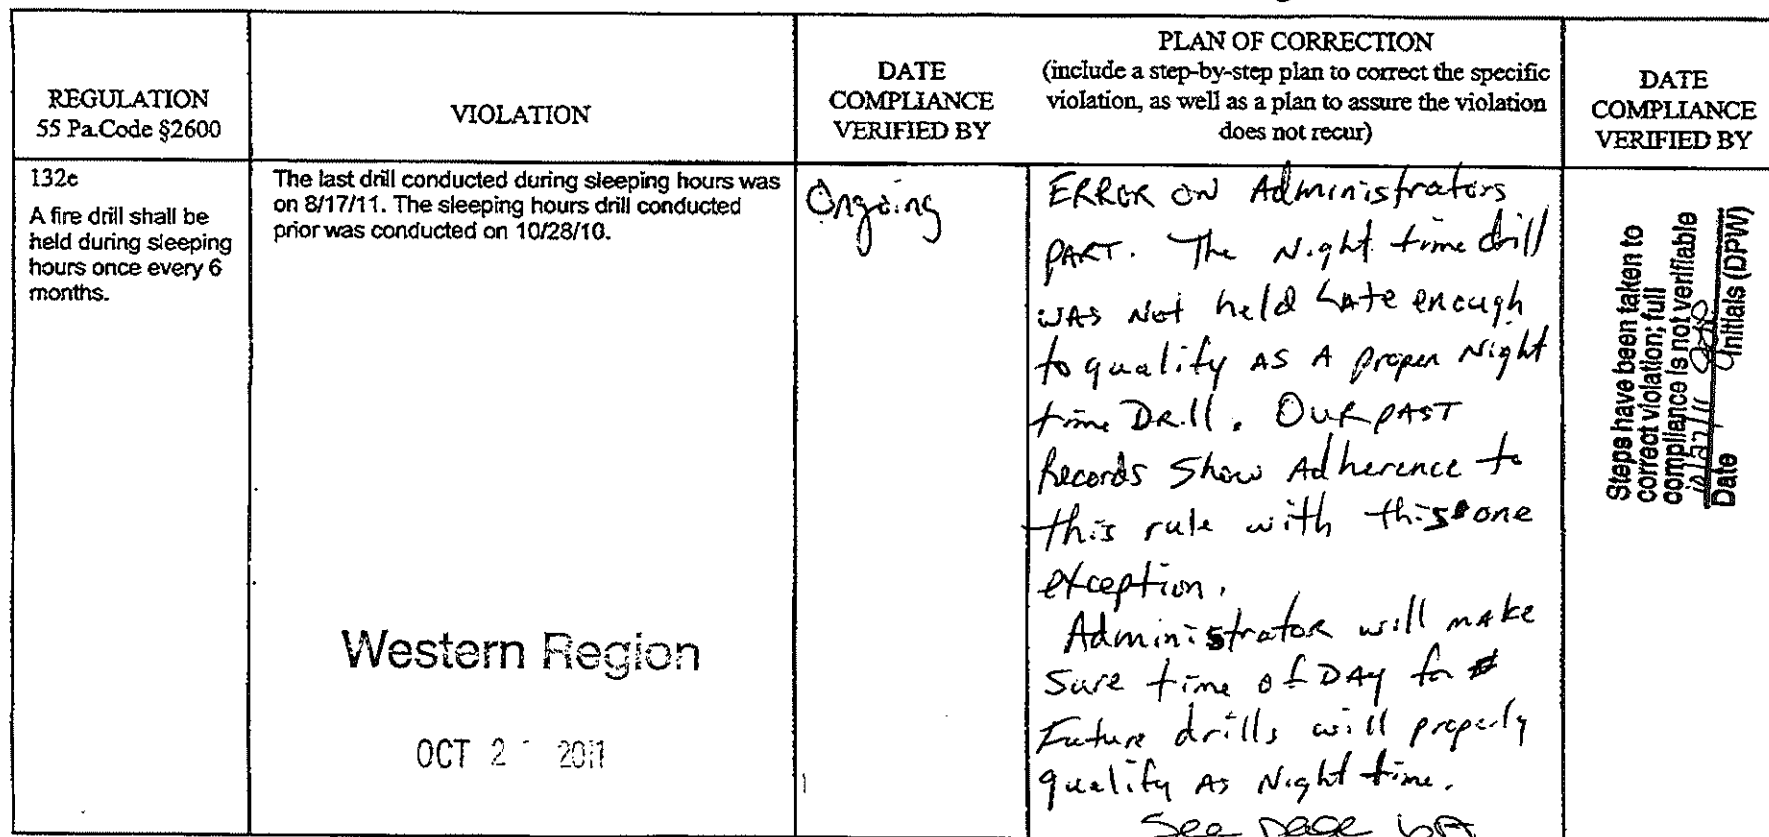 REGULATION
55 Pa.Code §2600
VIOLATION
DATE
COMPLIANCE
VERIFIED BY
PLAN OF CORRECTION
(include a step-by-step plan to correct the specific
violation, as well as a plan to assure the violation
does not recur)
DATE
COMPLIANCE
VERIFIED BY
132e
A fire drill shall be
held during sleeping
hours once every 6
months.
The last drill conducted during sleeping hours was
on 8/17/11. The sleeping hours drill conducted
prior was conducted on 10/28/10.
Western Region
OCT 2 2011
Ongoing
ERROR ON Administrators
PART. The Night time drill
WAS Not held Late enough
to quality AS A proper Night
time Drill. OUR PAST
Records Show Adherence to
this rule with this one
exception.
Administrator will make
Sure time of DAY for
Future drills will properly
qualify As Night time.
See page
Steps have been taken to
correct violation; full
compliance is not verifiable
Date Initials (DPW)